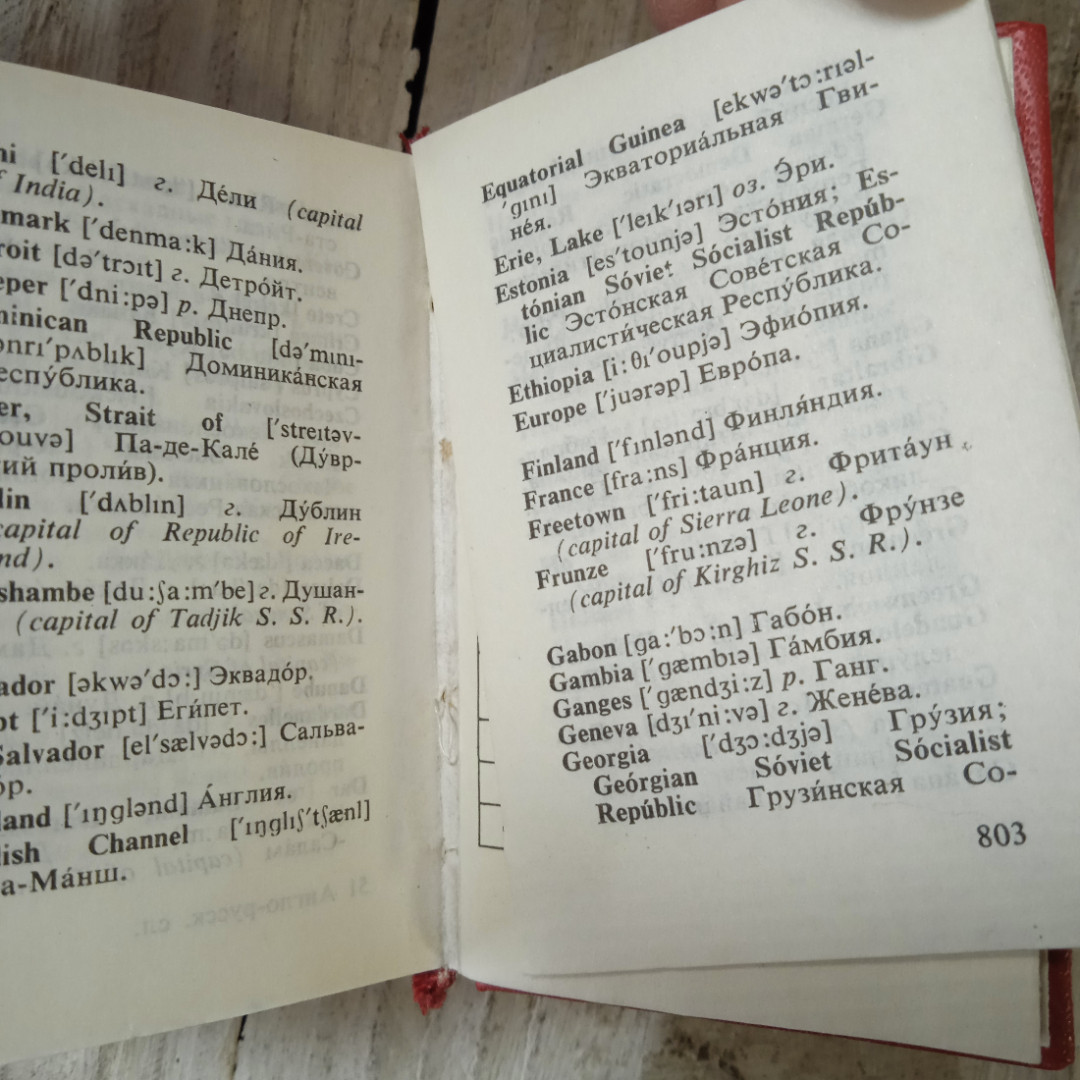 ni ['delɪ] г. Де́ли (capital
of India).
mark ['denma:k] Да́ния.
roit [də'trɔɪt] г. Детро́йт.
eper ['dni:pə] р. Днепр.
minican Republic [də'mɪnɪ-
ənrɪ'pʌblɪk] Доминика́нская
еспу́блика.
er, Strait of ['streɪtəv-
ouvə] Па-де-Кале́ (Ду́вр-
кий проли́в).
lin ['dʌblɪn] г. Ду́блин
capital of Republic of Ire-
nd).
shambe [du:ʃa:m'be] г. Душан-
(capital of Tadjik S. S. R.).
ador [əkwə'dɔ:] Эквадо́р.
pt ['i:dʒɪpt] Еги́пет.
Salvador [el'sælvədɔ:] Сальва-
о́р.
land ['ɪŋglənd] А́нглия.
lish Channel ['ɪŋglɪʃ'tʃænl]
а-Ма́нш.
Equatorial Guinea [ekwə'tɔ:rɪəl-
'gɪnɪ] Экваториа́льная Гви-
не́я.
Erie, Lake ['leɪk'ɪərɪ] оз. Э́ри.
Estonia [es'tounjə] Эсто́ния; Es-
tónian Sóviet Sócialist Repúb-
lic Эсто́нская Сове́тская Со-
циалисти́ческая Респу́блика.
Ethiopia [i:θɪ'oupjə] Эфио́пия.
Europe ['juərəp] Евро́па.
Finland ['fɪnlənd] Финля́ндия.
France [fra:ns] Фра́нция.
Freetown ['fri:taun] г. Фрита́ун
(capital of Sierra Leone).
Frunze ['fru:nzə] г. Фру́нзе
(capital of Kirghiz S. S. R.).
Gabon [ga:'bɔ:n] Габо́н.
Gambia ['gæmbɪə] Га́мбия.
Ganges ['gændʒi:z] р. Ганг.
Geneva [dʒɪ'ni:və] г. Жене́ва.
Georgia ['dʒɔ:dʒjə] Гру́зия;
Geórgian Sóviet Sócialist
Repúblic Грузи́нская Со-
803